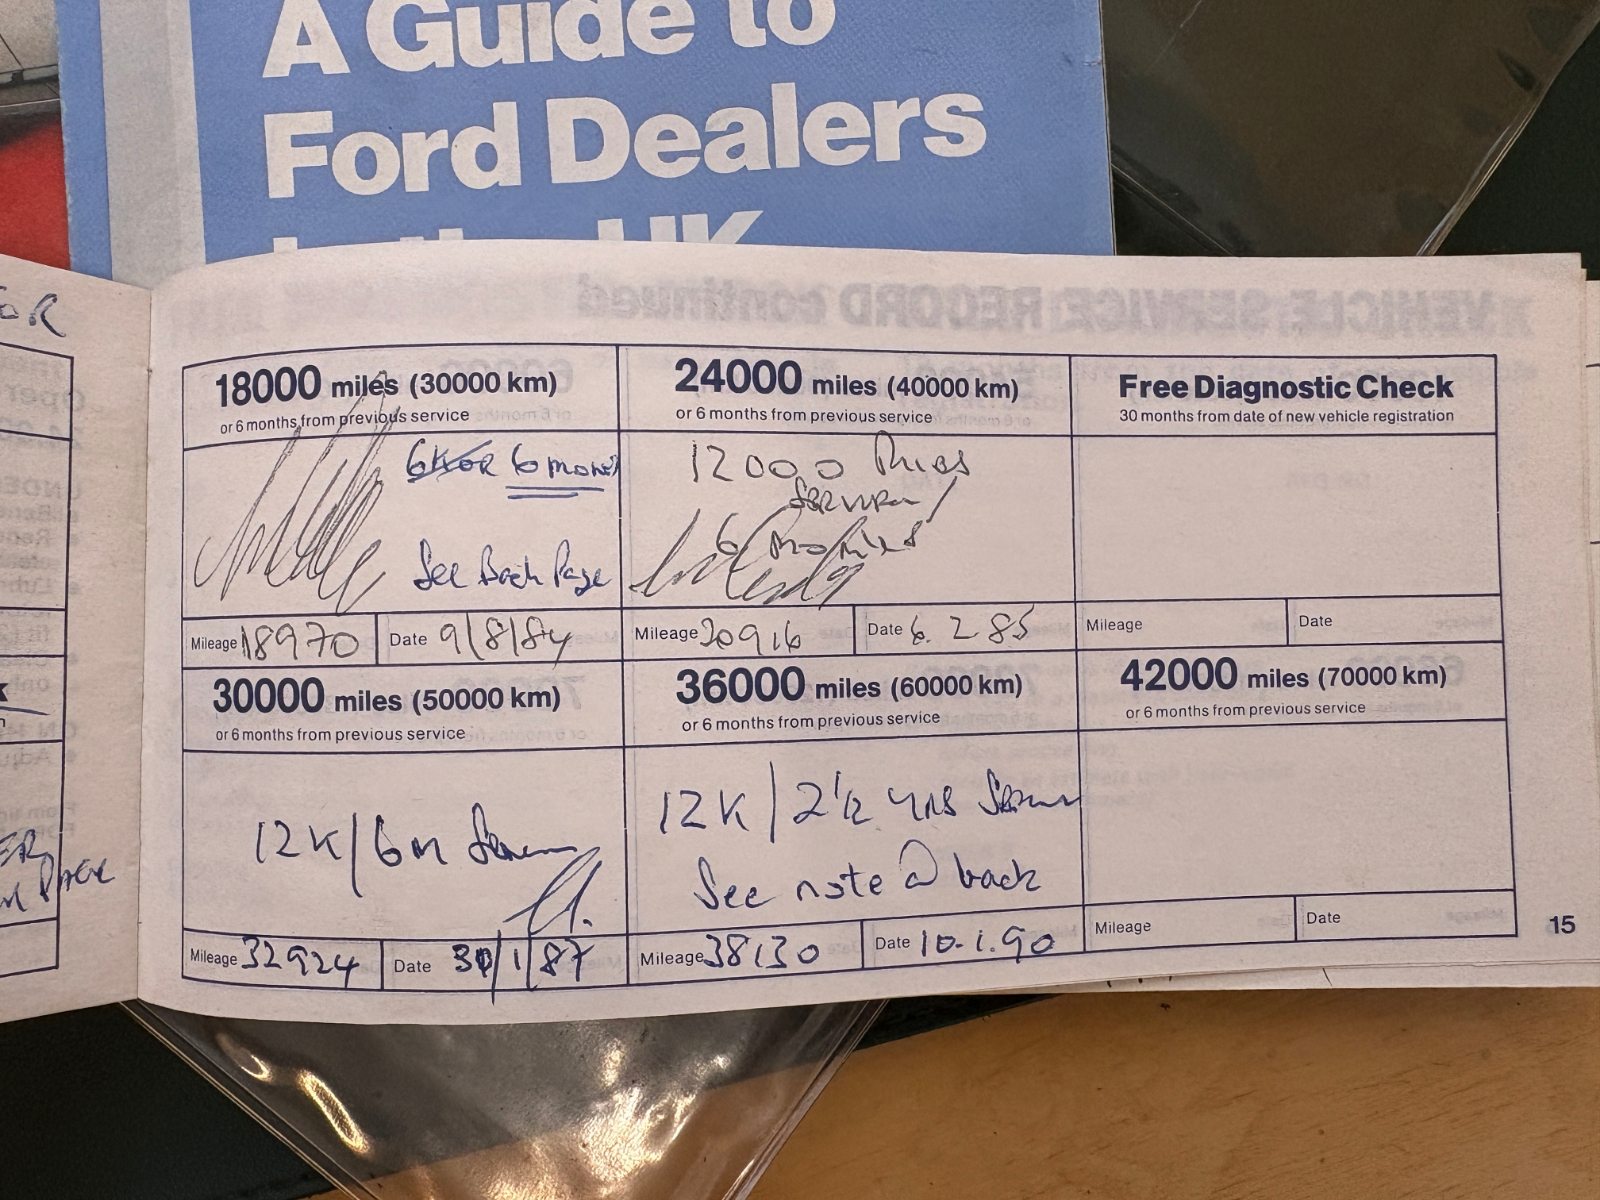 A Guide to
Ford Dealers
in the UK
VEHICLE SERVICE RECORD continued
18000 miles (30000 km)
or 6 months from previous service
6K OR 6 months
See Back Page
Mileage 18970 Date 9/8/84
24000 miles (40000 km)
or 6 months from previous service
12000 Miles
Service/
6 Months
Mileage 20916 Date 6.2.85
Free Diagnostic Check
30 months from date of new vehicle registration
Mileage Date
30000 miles (50000 km)
or 6 months from previous service
12K/6M Service
Mileage 32924 Date 30/1/87
36000 miles (60000 km)
or 6 months from previous service
12K/2½ YRS Service
See note @ back
Mileage 38130 Date 10.1.90
42000 miles (70000 km)
or 6 months from previous service
Mileage Date
15